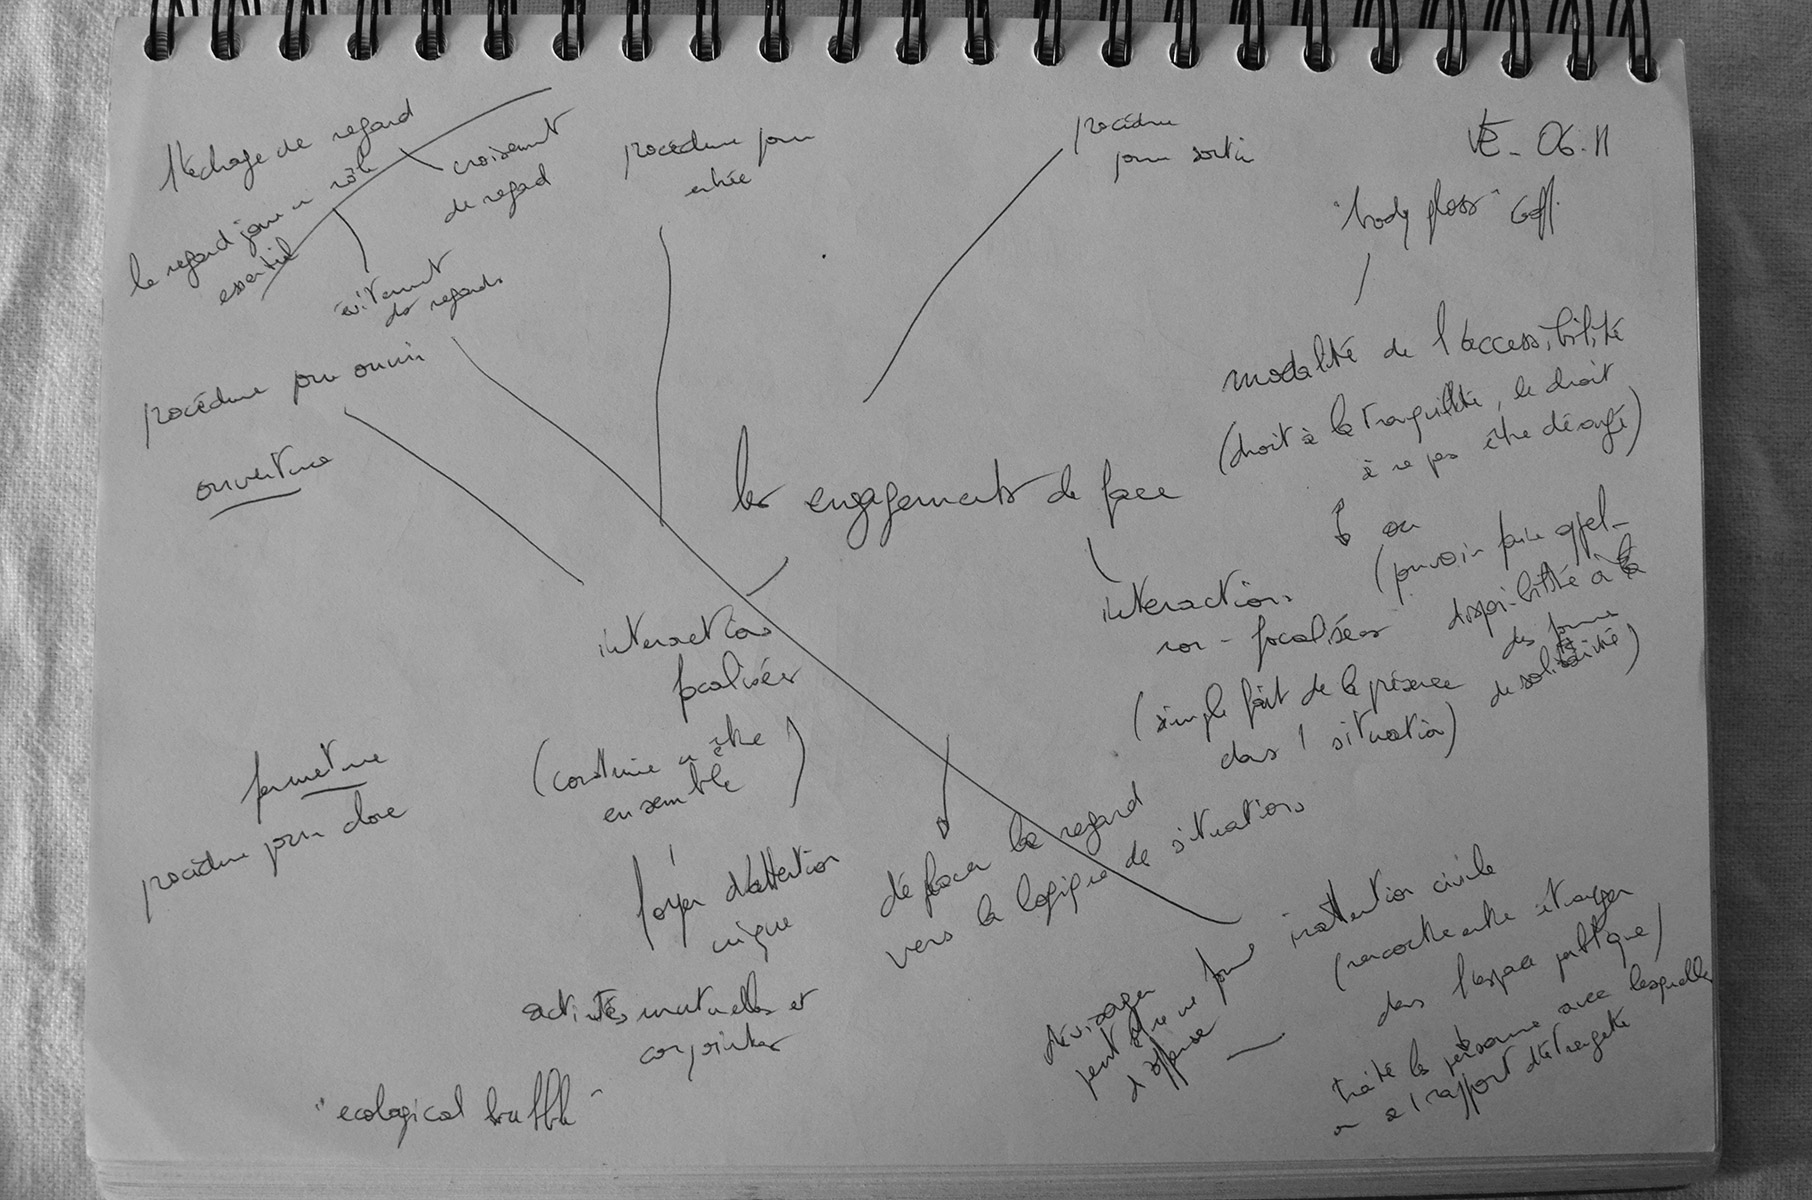 l'échange de regard
le regard joue un rôle
essentiel
croisement
de regard
évitement
de regards
procédure pour
entrée
procédure
pour sortir
VE - 06.11
"body gloss" Goff.
procédure pour ouvrir
ouverture
modalité de l'accessibilité
(droit à la tranquillité, le droit
à ne pas être dérangé)
ou
(pouvoir faire appel -
disponibilité à la
des formes
de solidarité)
les engagements de face
interactions
non-focalisées
(simple fait de la présence
dans l situation)
interactions
focalisées
(construire un être
ensemble)
foyer d'attention
unique
activités mutuelles et
conjointes
"ecological huddle"
fermeture
procédure pour clore
déplacer le regard
vers la logique de situations
inattention civile
(rencontre entre étranger
dans l'espace publique)
traité les personne avec lesquelles
on a 1 rapport d'étrangeté
dévisager
peut être une forme
d'offense